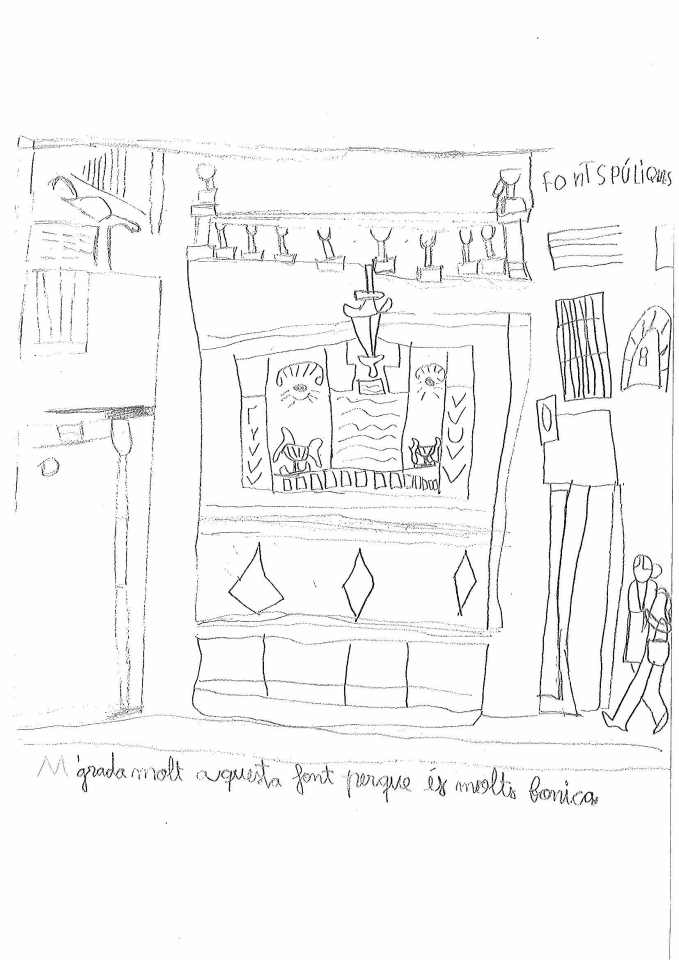 FONTS PÚLIQUES
M'grada molt aquesta font perque és molts bonica.